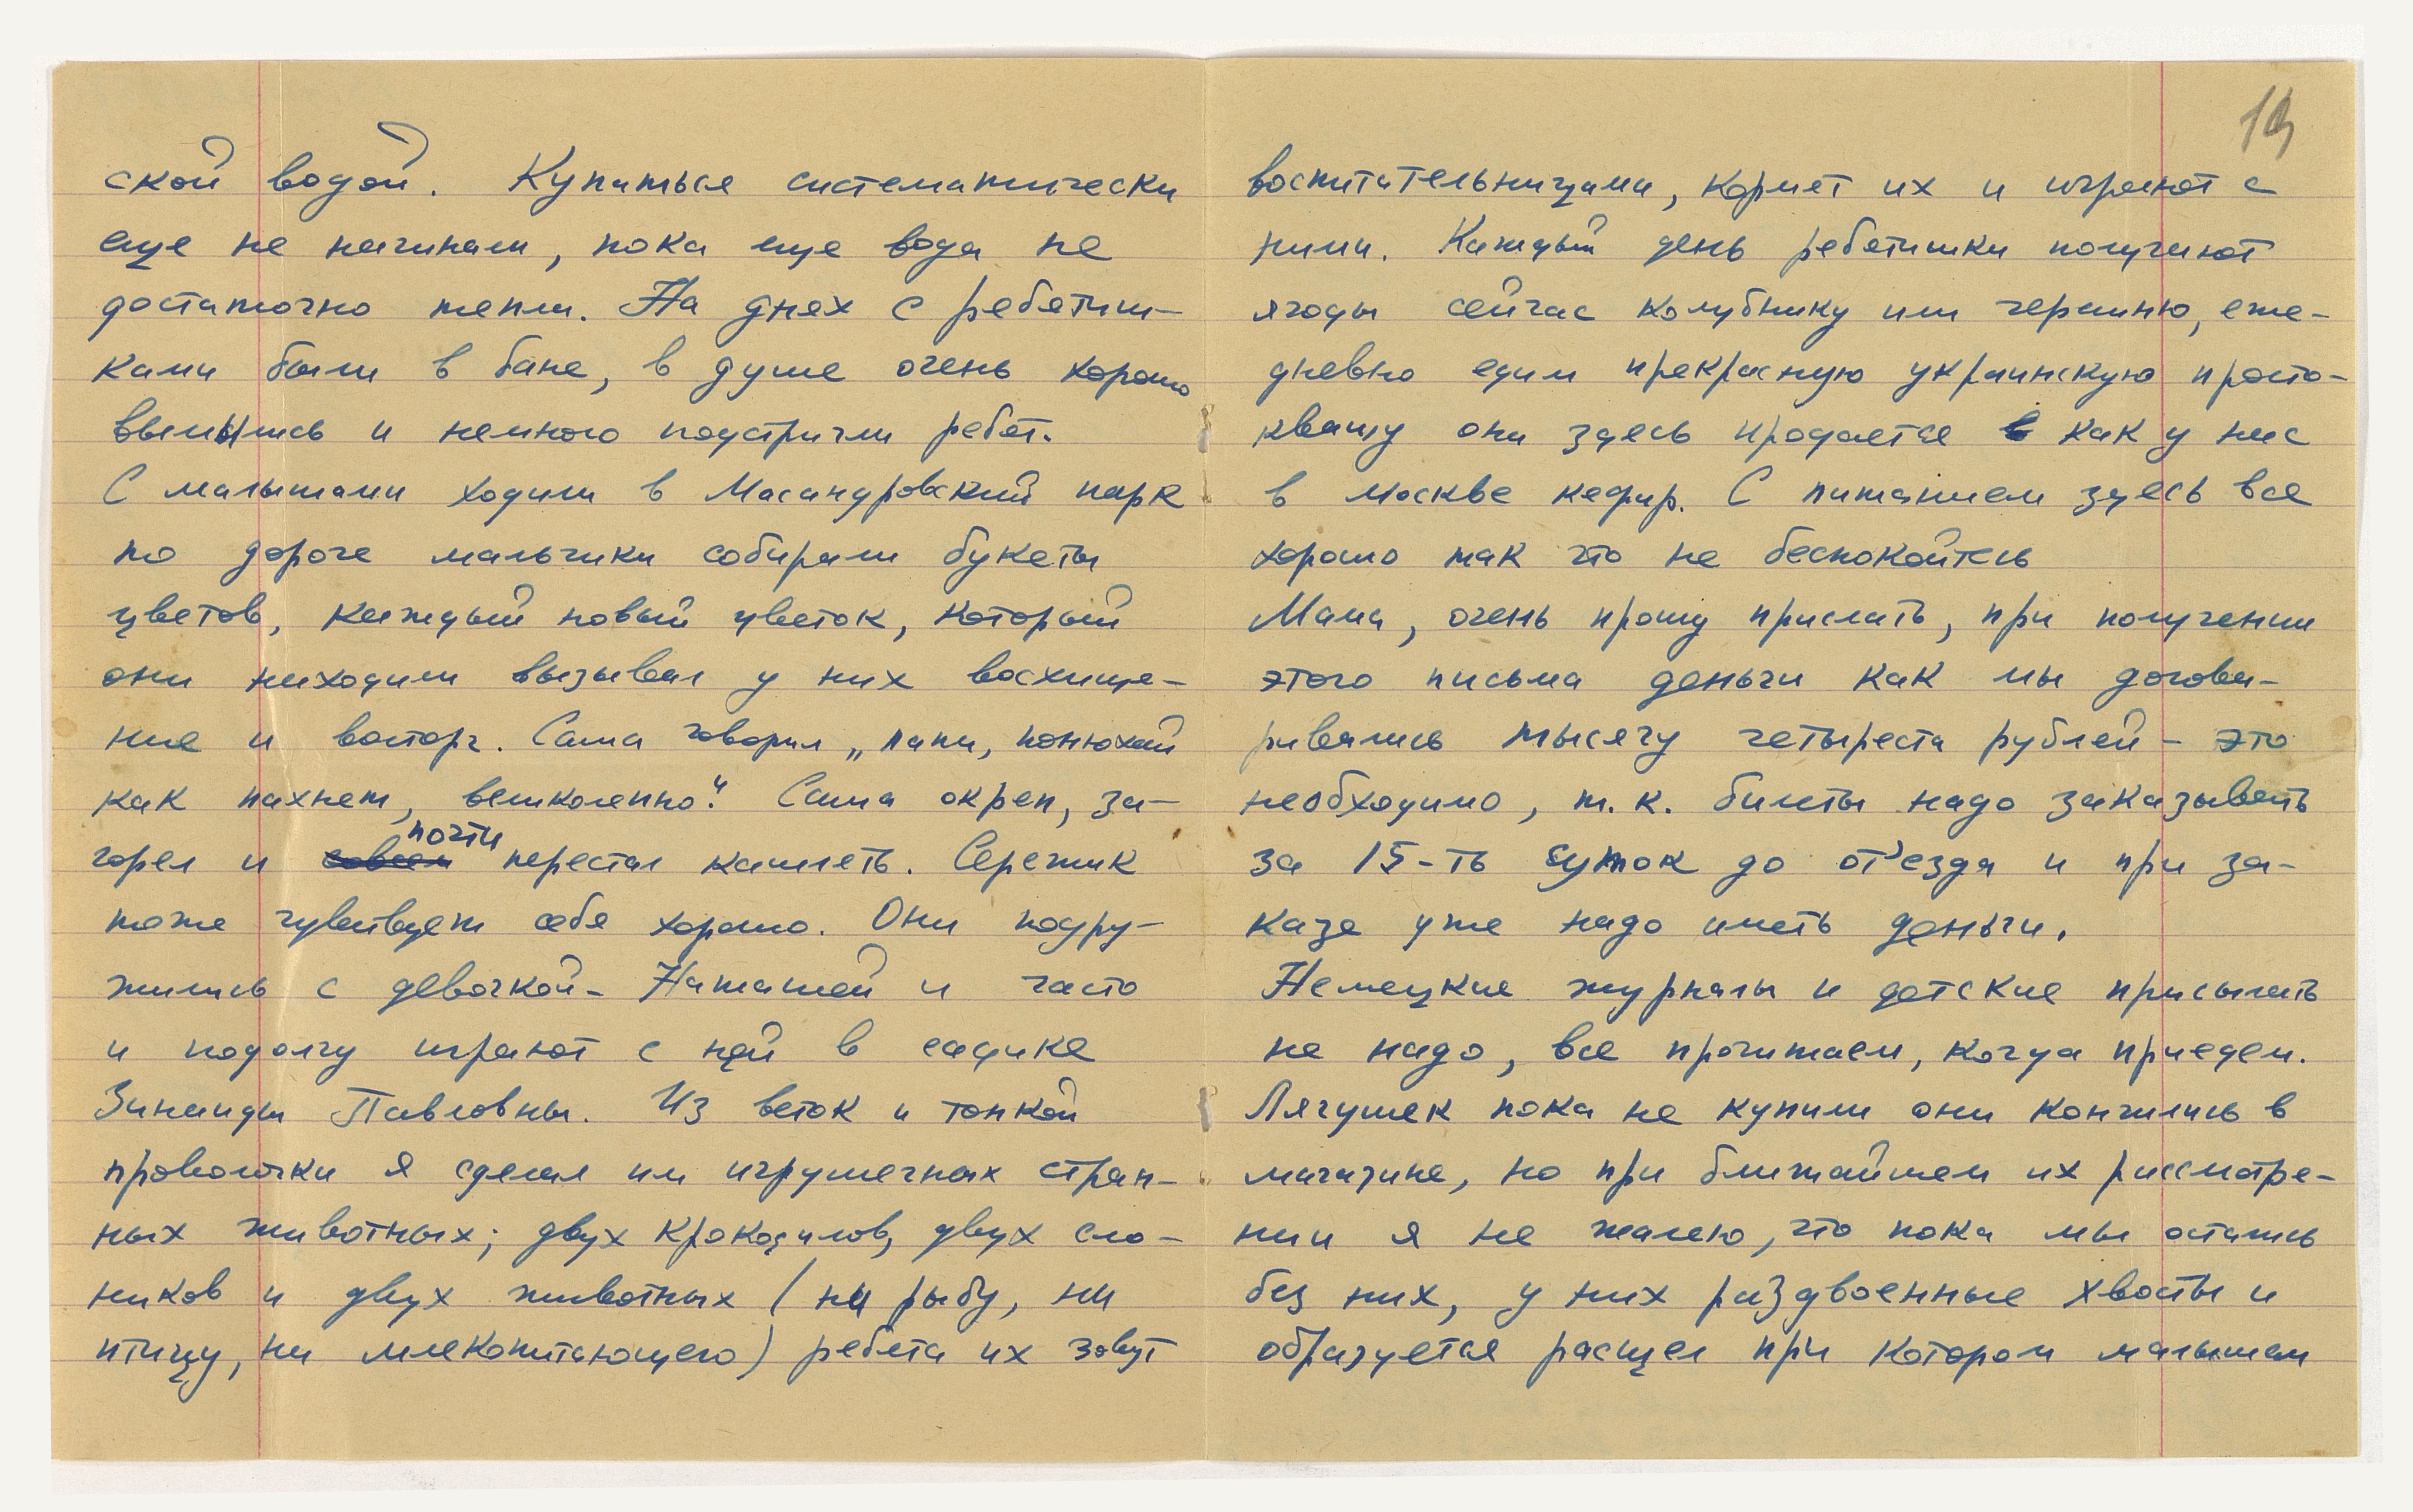 ской водой. Купаться систематически
еще не начинали, пока еще вода не
достаточно тепла. На днях с ребятиш-
ками были в бане, в душе очень хорошо
вымылись и немного подстригли ребят.
С малышами ходили в Масандровский парк
по дороге мальчики собирали букеты
цветов, каждый новый цветок, который
они находили вызывал у них восхище-
ние и восторг. Саша говорил „папа, понюхай
как пахнет, великолепно." Саша окреп, за-
горел и совсем почти перестал кашлять. Сережик
тоже чувствует себя хорошо. Они подру-
жились с девочкой - Наташей и часто
и подолгу играют с ней в садике
Зинаиды Павловны. Из веток и тонкой
проволочки я сделал им игрушечных стран-
ных животных; двух крокодилов, двух сло-
ников и двух животных (ни рыбу, ни
птицу, ни млекопитающего) ребята их зовут
19
воспитательницами, кормят их и играют с
ними. Каждый день ребятишки получают
ягоды сейчас колубнику или черешню, еже-
дневно едим прекрасную украинскую просто-
квашу она здесь продается как у нас
в москве кефир. С питанием здесь все
хорошо так что не беспокойтесь
Мама, очень прошу прислать, при получении
этого письма деньги как мы догова-
ривались тысячу четыреста рублей - это
необходимо, т.к. билеты надо заказывать
за 15-ть суток до от'езда и при за-
казе уже надо иметь деньги.
Немецкие журналы и детские присылать
не надо, все прочитаем, когда приедем.
Лягушек пока не купили они кончились в
магазине, но при ближайшем их рассмотре-
нии я не жалею, что пока мы остались
без них, у них раздвоенные хвосты и
образуется расщел при котором малышам